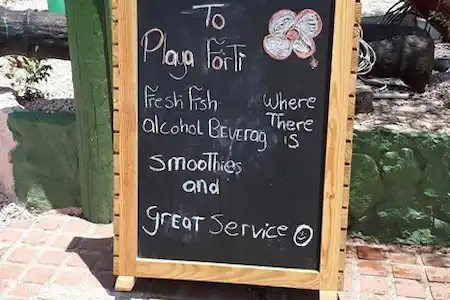 To
Playa Forti
Fresh Fish
alcohol Beverag
Where
There
is
Smoothies
and
great Service